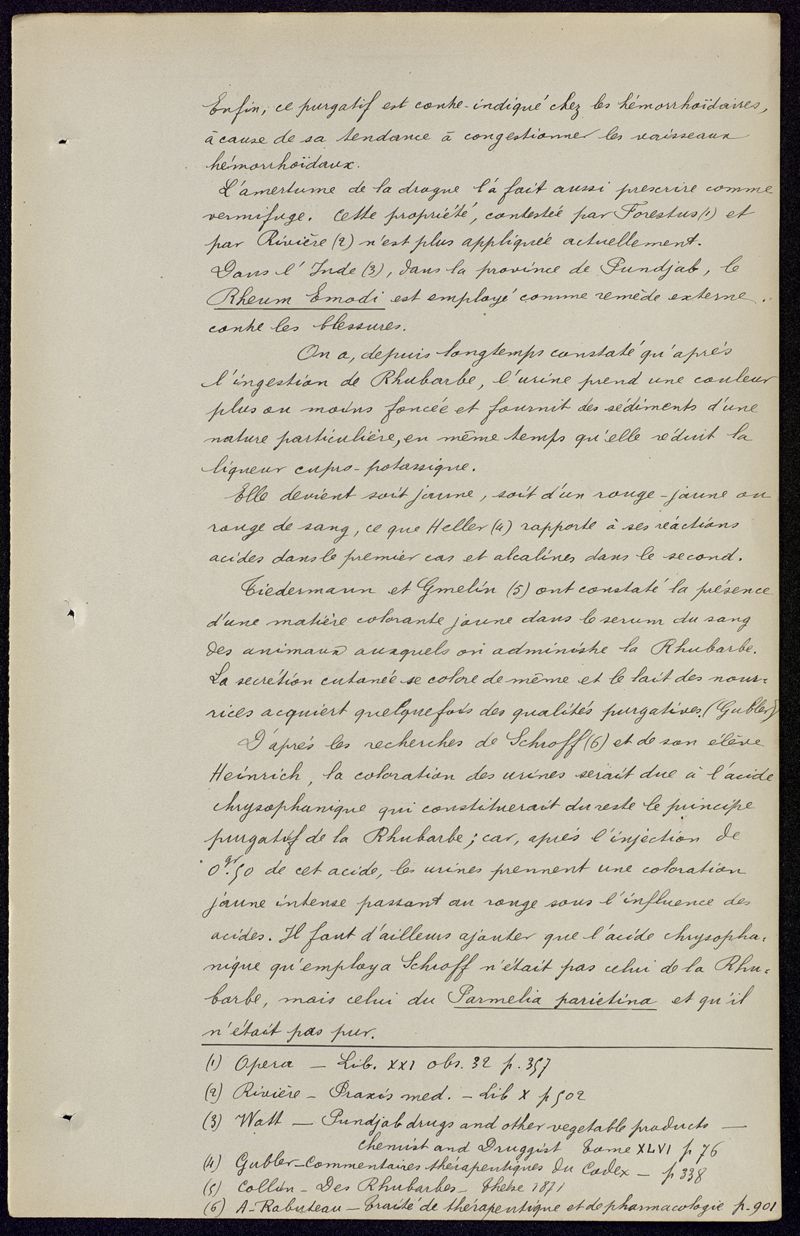 Enfin, ce purgatif est contre-indiqué chez les hémorrhoïdaires,
à cause de sa tendance à congestionner les vaisseaux
hémorrhoïdaux.
L'amertume de la drogue l'a fait aussi prescrire comme
vermifuge. Cette propriété, contestée par Forestus (1) et
par Rivière (2) n'est plus appliquée actuellement.
Dans l'Inde (3), dans la province de Pundjab, le
Rheum Emodi est employé comme remède externe
contre les blessures.
On a, depuis longtemps constaté qu'après
l'ingestion de Rhubarbe, l'urine prend une couleur
plus ou moins foncée et fournit des sédiments d'une
nature particulière, en même temps qu'elle réduit la
liqueur cupro-potassique.
Elle devient soit jaune, soit d'un rouge-jaune ou
rouge de sang, ce que Heller (4) rapporte à ses réactions
acides dans le premier cas et alcalines dans le second.
Tiedermann et Gmelin (5) ont constaté la présence
d'une matière colorante jaune dans le serum du sang
des animaux auxquels on administre la Rhubarbe.
La secrétion cutanée se colore de même et le lait des nour-
rices acquiert quelquefois des qualités purgatives. (Gubler)
D'après les recherches de Schroff (6) et de son élève
Heinrich, la coloration des urines serait due à l'acide
chrysophanique qui constituerait du reste le principe
purgatif de la Rhubarbe; car, après l'injection de
0gr.50 de cet acide, les urines prennent une coloration
jaune intense passant au rouge sous l'influence des
acides. Il faut d'ailleurs ajouter que l'acide chrysopha-
nique qu'employa Schroff n'était pas celui de la Rhu-
barbe, mais celui du Parmelia parietina et qu'il
n'était pas pur.
(1) Opera — Lib. XXI obs. 32 p. 357
(2) Rivière — Praxis med. — Lib X p 502
(3) Watt — Pundjab drugs and other vegetable products —
chemist and Druggist Tome XLVI p 76
(4) Gubler — Commentaires thérapeutiques du Codex — p 338
(5) Collin — Des Rhubarbes — Thèse 1871
(6) A. Rabuteau — Traité de thérapeutique et de pharmacologie p. 901